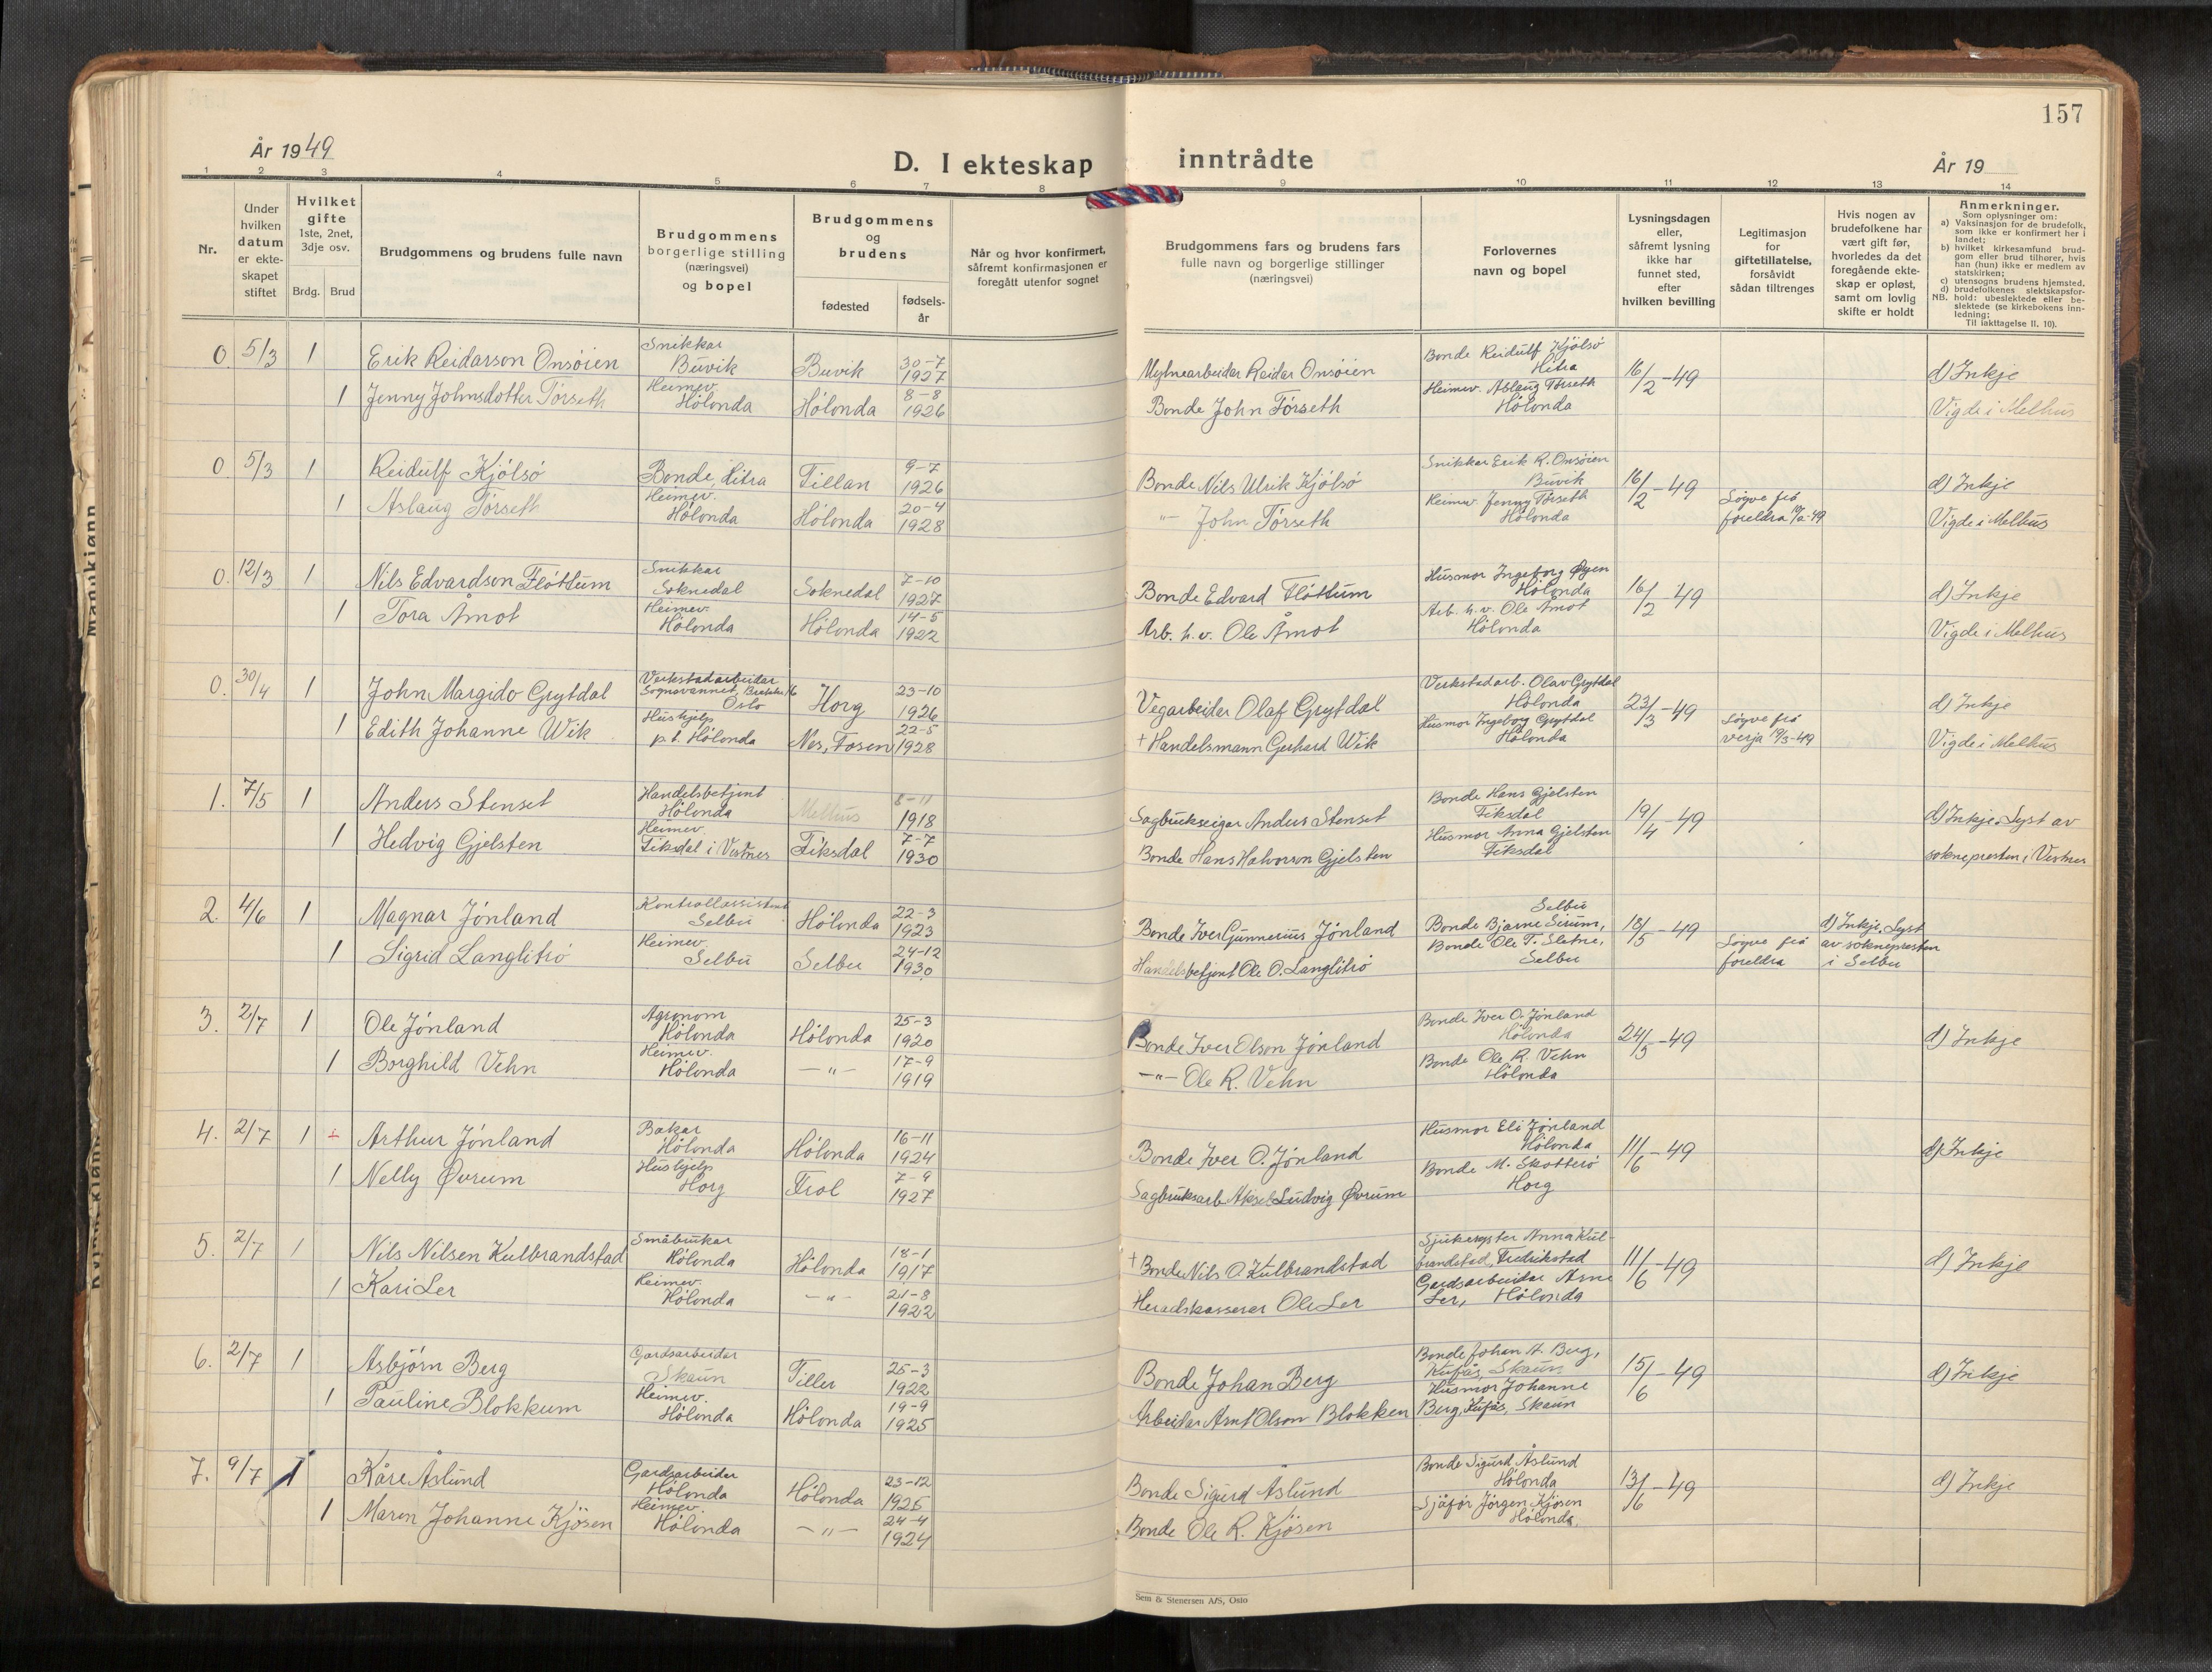 157
År 1949
D. I ekteskap inntrådte
År 19
1 2 3 4 5 6 7 8 9 10 11 12 13 14
Nr.
Under
hvilken
datum
er ekte-
skapet
stiftet
Hvilket
gifte
1ste, 2net,
3dje osv.
Brdg. Brud
Brudgommens og brudens fulle navn
Brudgommens
borgerlige stilling
(næringsvei)
og bopel
Brudgommens
og
brudens
fødested
fødsels-
år
Når og hvor konfirmert,
såfremt konfirmasjonen er
foregått utenfor sognet
Brudgommens fars og brudens fars
fulle navn og borgerlige stillinger
(næringsvei)
Forlovernes
navn og bopel
Lysningsdagen
eller,
såfremt lysning
ikke har
funnet sted,
efter
hvilken bevilling
Legitimasjon
for
giftetillatelse,
forsåvidt
sådan tiltrenges
Hvis nogen av
brudefolkene har
vært gift før,
hvorledes da det
foregående ekte-
skap er opløst,
samt om lovlig
skifte er holdt
Anmerkninger.
Som oplysninger om:
a) Vaksinasjon for de brudefolk,
som ikke er konfirmert her i
landet;
b) hvilket kirkesamfund brud-
gom eller brud tilhører, hvis
han (hun) ikke er medlem av
statskirken;
c) utensogns brudens hjemsted.
d) brudefolkenes slektskapsfor-
NB. hold: ubeslektede eller be-
slektede (se kirkebokens inn-
ledning;
Til iakttagelse II. 10).
0. 5/3 1 Erik Reidarson Onsöien Snikkar Buvik Buvik 30-7 1927 Mylnearbeidar Reidar Onsöien Bonde Reidulf Kjölsö Hitra 16/2-49 d) Inkje
1 Jenny Johnsdotter Törseth Heimev. Hölonda Hölonda 8-8 1926 Bonde John Törseth Heimev. Aslaug Törseth Hölonda Vigde i Melhus
0 5/3 1 Reidulf Kjölsö Bonde, Hitra Fillan 9-7 1926 Bonde Nils Ulrik Kjölsö Snikkar Erik R. Onsöien Buvik 16/2-49 d) Inkje
1 Aslaug Törseth Heimev. Hölonda Hölonda 20-4 1928 -"- John Törseth Heimev. Jenny Törseth Hölonda Löyve frå foreldra Vigde i Melhus
0. 12/3 1 Nils Edvardson Flöttum Snikkar Soknedal Soknedal 7-10 1927 Bonde Edvard Flöttum Husmor Ingeborg Øyen Hölonda 16/2-49 d) Inkje
1 Tora Åmot Heimev. Hölonda Hölonda 14-5 1922 Arb. h. v. Ole Åmot Arb. h. v. Ole Åmot Hölonda Vigde i Melhus
0. 30/4 1 John Margido Grytdal Verkstadarbeidar Sognsvannet, Oslo Horg 23-10 1926 Vegarbeidar Olaf Grytdal Verkstadarb. Olav Grytdal Hölonda 23/3-49 d) Inkje
1 Edith Johanne Wik Hushjelp p.t. Hölonda Nes, Fosen 22-5 1928 + Handelsmann Gerhard Wik Husmor Ingeborg Grytdal Hölonda Löyve frå verja 19/3-49 Vigde i Melhus
1. 7/5 1 Anders Stenset Handelsbetjent Hölonda Melhus 8-11 1918 Sagbrukseigar Anders Stenset Bonde Hans Gjelsten Fiksdal 19/4-49 d) Inkje. Lyst av
1 Hedvig Gjelsten Heimev. Fiksdal i Vestnes Fiksdal 7-7 1930 Bonde Hans Halvorson Gjelsten Husmor Anna Gjelsten Fiksdal soknepresten i Vestnes
2. 4/6 1 Magnar Jönland Kontrollassistent Selbu Hölonda 22-3 1923 Bonde Iver Gunnerius Jönland Bonde Bjarne Sirum, Selbu 18/5-49 d) Inkje. Lyst
1 Sigrid Langlitrö Heimev. Selbu Selbu 24-12 1930 Handelsbetjent Ole O. Langlitrö Bonde Ole T. Sletne, Selbu Löyve frå foreldra av soknepresten i Selbu
3. 2/7 1 Ole Jönland Agronom Hölonda Hölonda 25-3 1920 Bonde Iver Olson Jönland Bonde Iver O. Jönland Hölonda 24/5-49 d) Inkje
1 Borghild Vehn Heimev. Hölonda -"- 17-9 1919 -"- Ole R. Vehn Bonde Ole R. Vehn Hölonda
4. 2/7 1 Arthur Jönland Bakar Hölonda Hölonda 16-11 1924 Bonde Iver O. Jönland Husmor Eli Jönland Hölonda 11/6-49 d) Inkje
1 Nelly Øvrum Hushjelp Horg Frol 7-9 1927 Sagbruksarb. Aksel Ludvig Øvrum Bonde M. Skotterö Horg
5. 2/7 1 Nils Nilsen Kulbrandstad Småbrukar Hölonda Hölonda 18-1 1917 + Bonde Nils O. Kulbrandstad Sjukesyster Anna Kulbrandstad, Fredrikstad 11/6-49 d) Inkje
1 Kari Ler Heimev. Hölonda -"- 21-8 1922 Heradskasserar Ole Ler Gardsarbeidar Arne Ler, Hölonda
6. 2/7 1 Asbjörn Berg Gardsarbeidar Skaun Tiller 25-3 1922 Bonde Johan Berg Bonde Johan A. Berg, Kufås, Skaun 15/6-49 d) Inkje
1 Pauline Blokkum Heimev. Hölonda Hölonda 19-9 1925 Arbeidar Arnt Olson Blokken Husmor Johanne Berg, Kufås, Skaun
7. 9/7 1 Kåre Åslund Gardsarbeidar Hölonda Hölonda 23-12 1925 Bonde Sigurd Åslund Bonde Sigurd Åslund Hölonda 13/6-49 d) Inkje
1 Maren Johanne Kjösen Heimev. Hölonda -"- 24-4 1924 Bonde Ole R. Kjösen Sjåför Jörgen Kjösen Hölonda
Sem & Stenersen A/S, Oslo